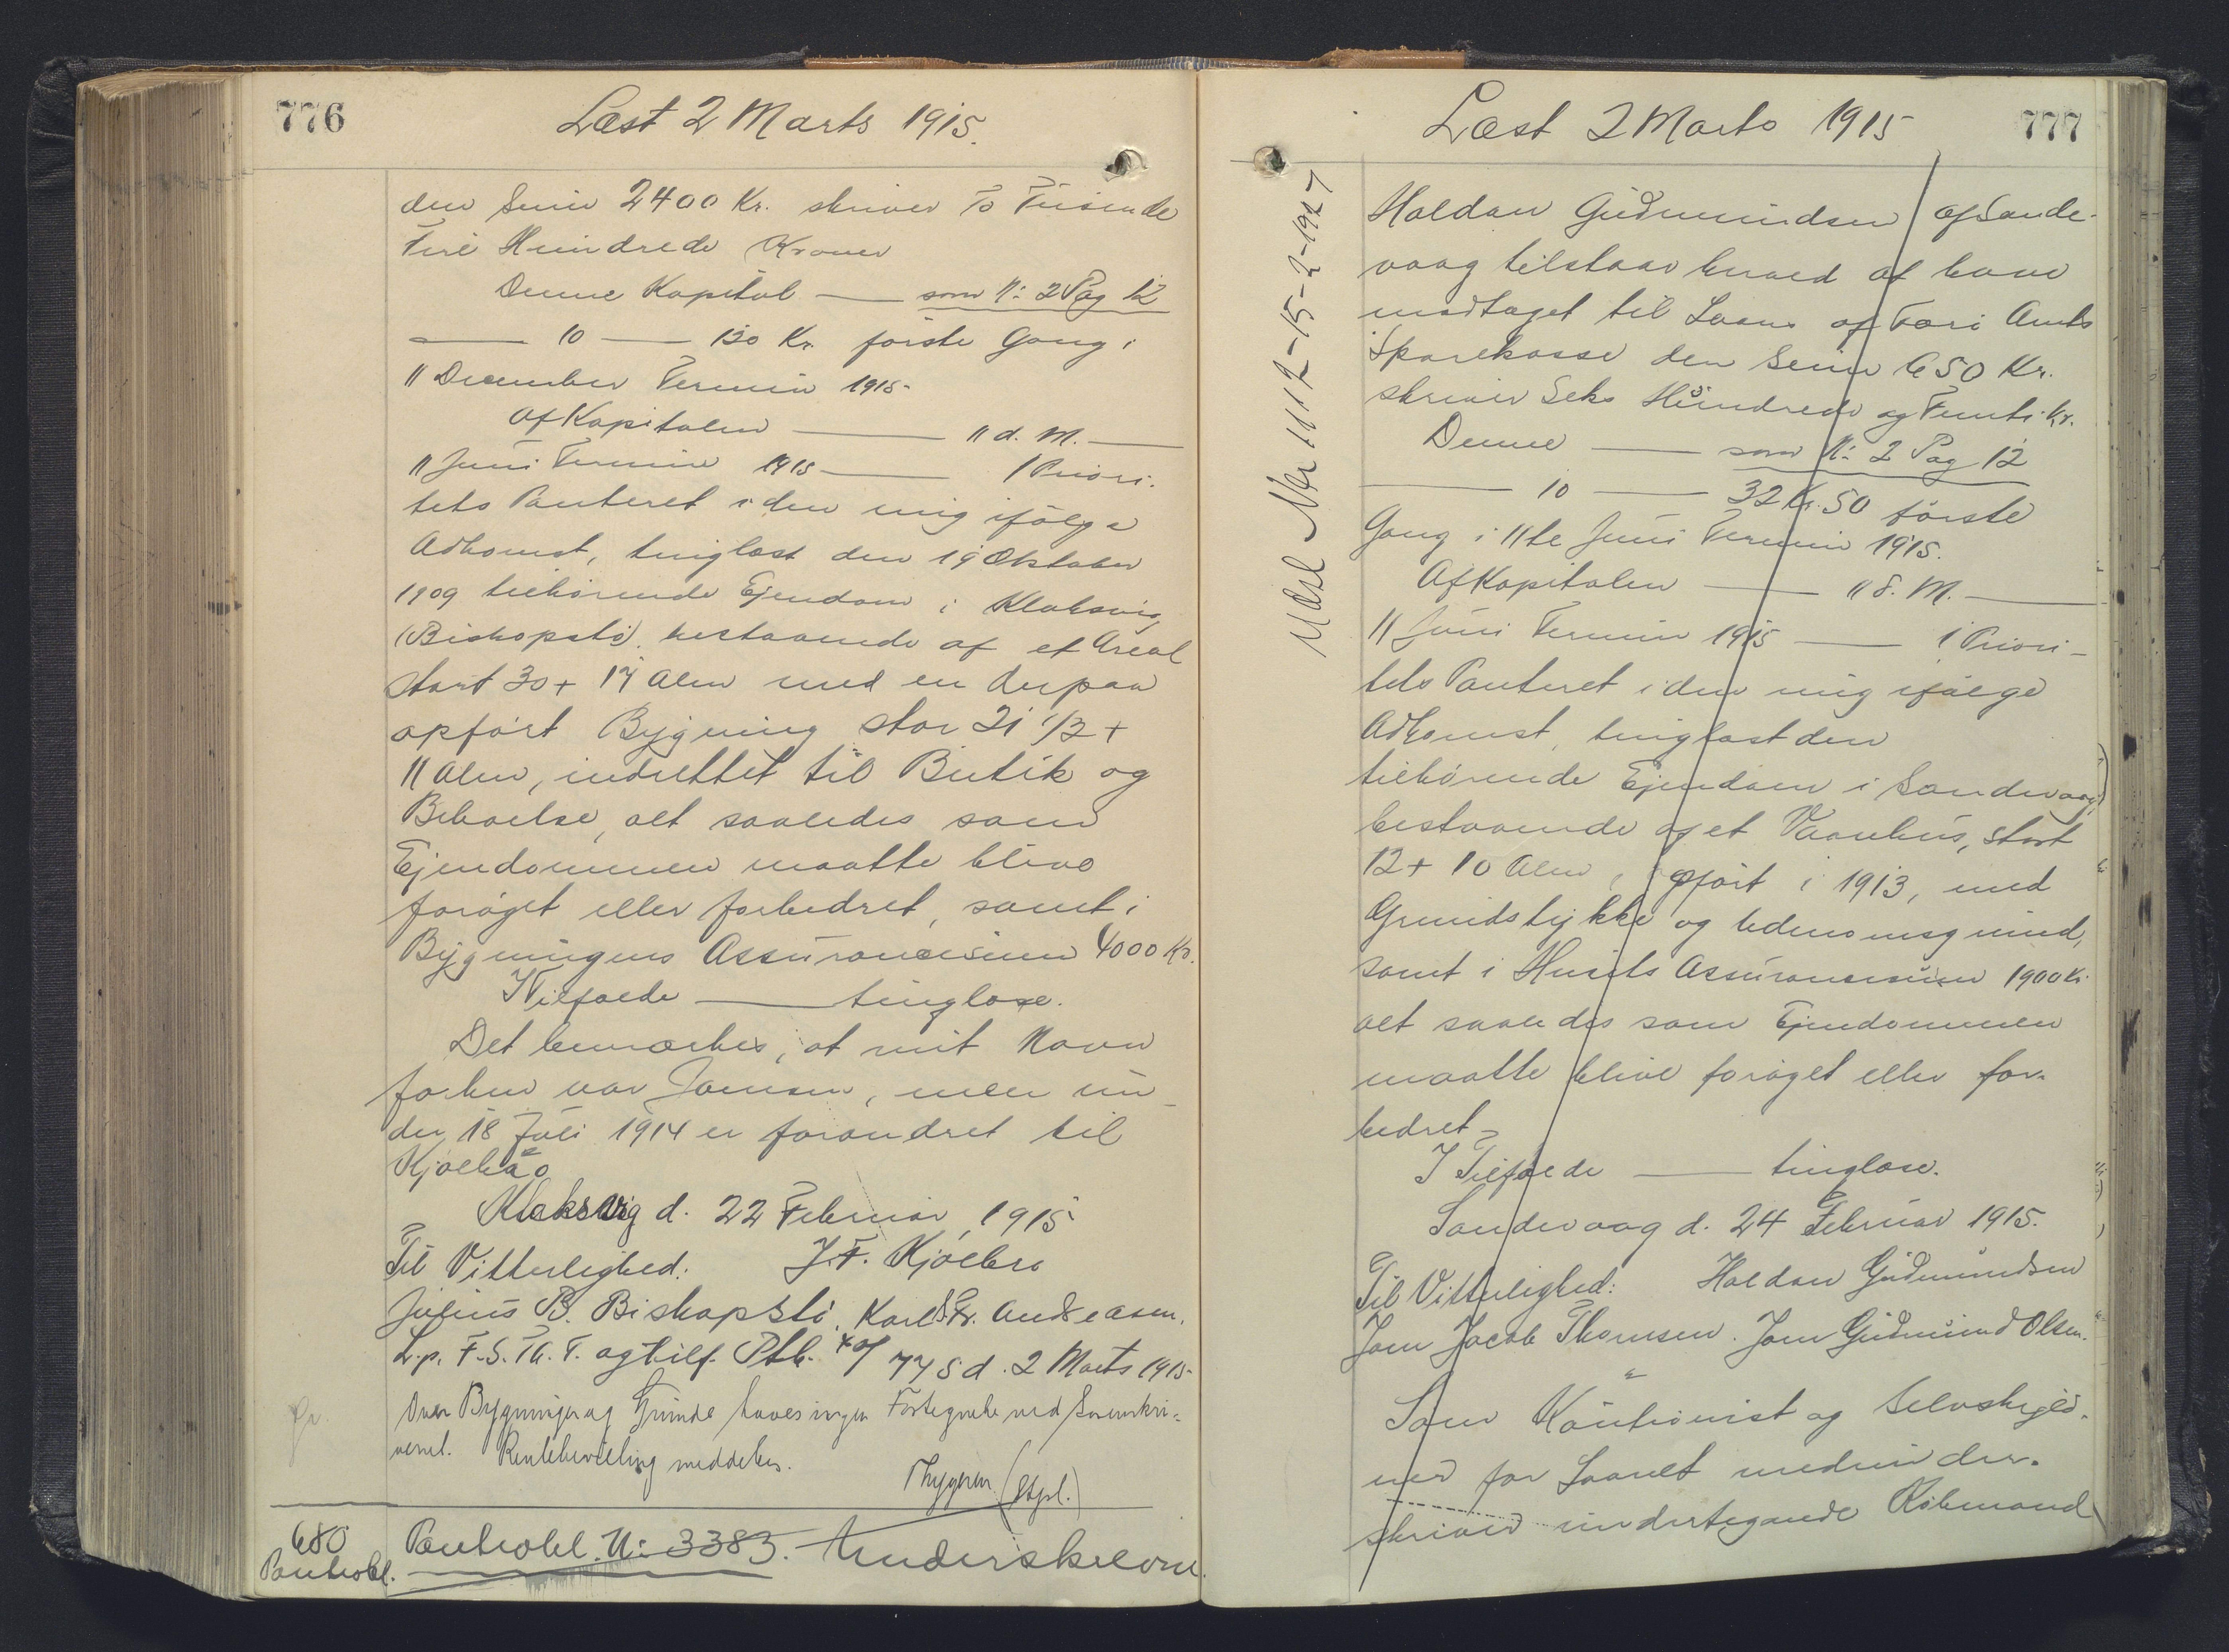 776
Læst 2 Marts 1915.
den Sum 2400 Kr. skriver To Tusende
Fire Hundrede Kroner
Denne Kapital — som No 2 Pag 12
— 10 — 130 Kr. første Gang i
11 December Termin 1915
Af Kapitalen — 11 d. M. —
11 Juni Termin 1915 — 1 Priori-
tets Panteret i den mig ifølge
Adkomst, tinglæst den 19 Oktober
1909 tilhørende Ejendom i Klaksvig
(Bishopstö) bestaaende af et Areal
stort 30 + 17 Alen med en derpaa
opført Bygning stor 21 1/2 +
11 Alen, indrettet til Butik og
Beboelse, alt saaledes som
Ejendommen maatte blive
forøget eller forbedret, samt i
Bygningens Assurancesum 4000 Kr.
I Tilfælde — tinglæse.
Det bemærkes, at mit Navn
forhen var Joensen, men un-
der 18 Juli 1914 er forandret til
Kjølbro
Klaksvig d. 22 Februar 1915
Til Vitterlighed: J.F. Kjølbro
Julius B. Biskopstö, Karl Fr. Andreasen.
L.p. F. S. Th. T. og tilf. Ptb. 775 d. 2 Marts 1915
Over Bygninger og Grunde haves ingen Fortegnelse ved Sorenskri-
veriet. Rentebevilling meddeles.
Thygesen (Stpl.)
680
Panteobl.
Panteobl. No 3383. Underskrevne
777
Læst 2 Marts 1915
Udsl Nr 1112-15-2-1927
Haldan Gudmundsen af Sande-
vaag tilstaar herved at have
modtaget til Laans af Færø Amts
Sparekasse den Sum 650 Kr.
skriver Seks Hundrede og Femti Kr.
Denne — som No 2 Pag 12
— 10 — 32 Kr. 50 første
Gang i 11te Juni Termin 1915.
Af Kapitalen — 11 d. M. —
11 Juni Termin 1915 — 1 Priori-
tets Panteret i den mig ifølge
Adkomst, tinglæst den
tilhørende Ejendom i Sandevaag
bestaaende af et Vaanhus, stort
12 + 10 Alen, opført i 1913, med
Grundstykke og
samt i Husets Assurancesum 1900 Kr.
alt saaledes som Ejendommen
maatte blive forøget eller for-
bedret
I Tilfælde — tinglæse.
Sandevaag d. 24 Februar 1915.
Til Vitterlighed: Haldan Gudmundsen
Joen Jacob Thomsen. Joen Gudmund Olsen.
Som Kautionist og Selvskyld-
ner for Laanet medunder-
skriver undertegnede Købmand